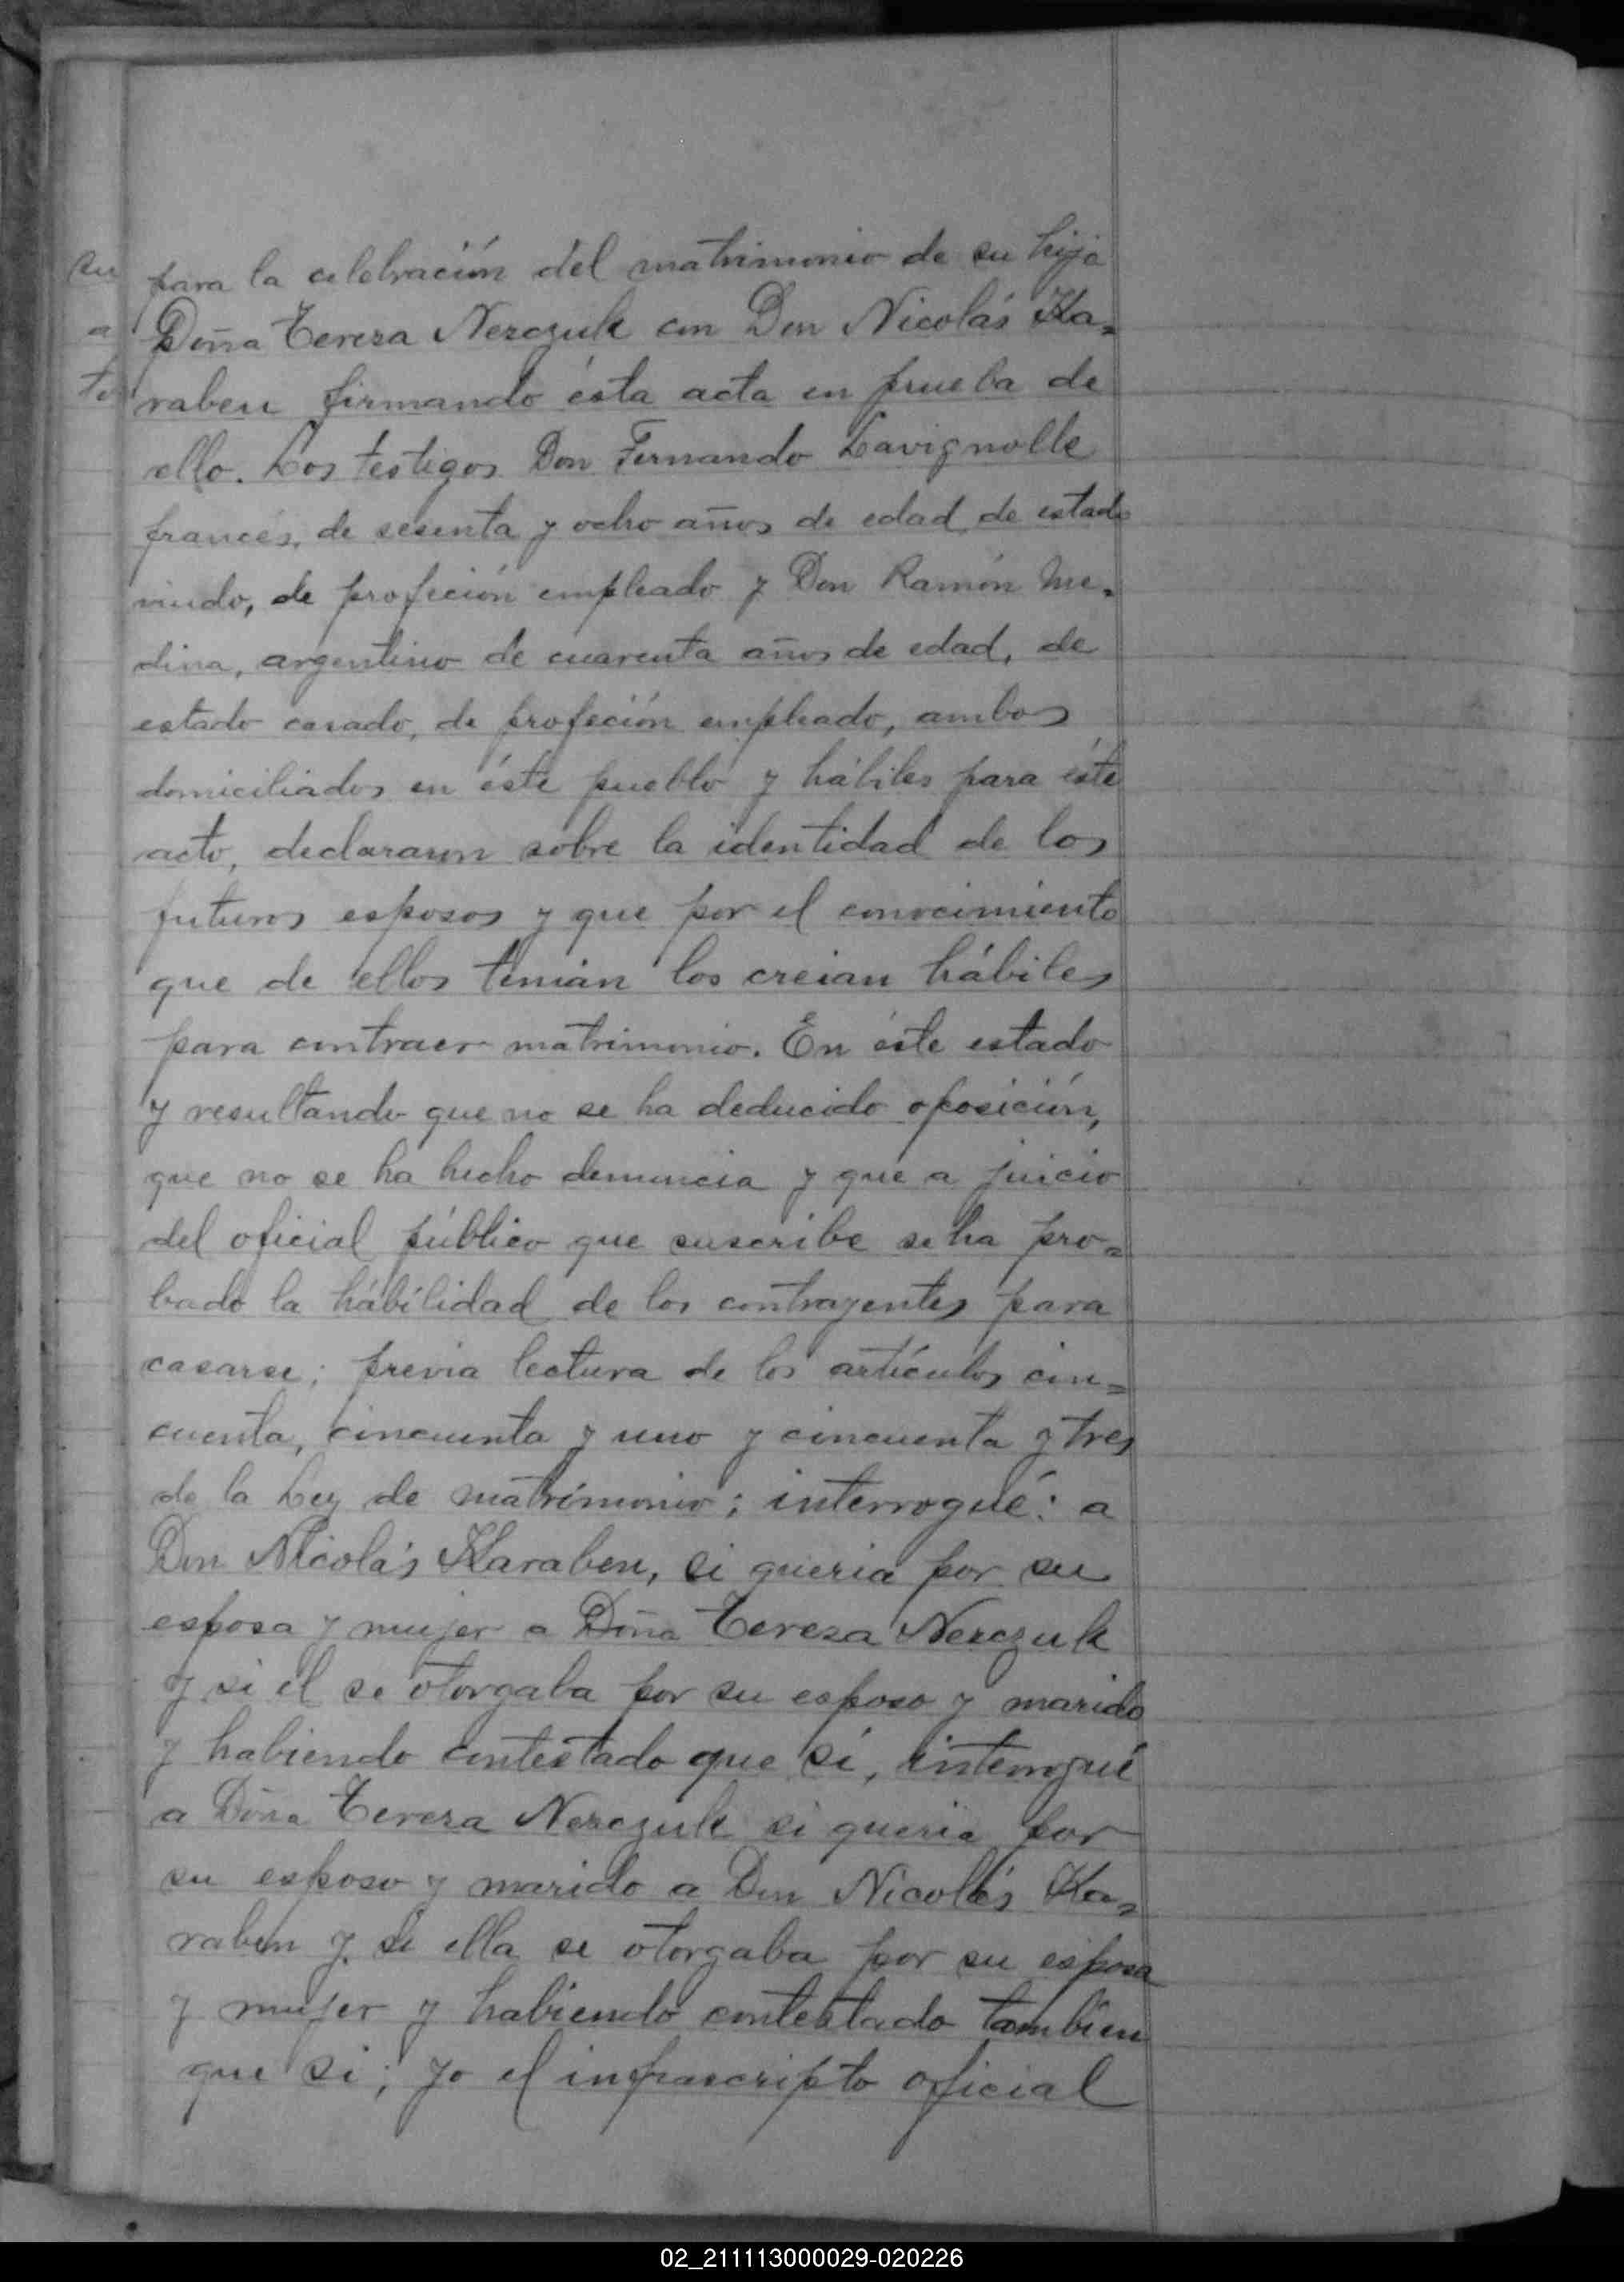 para la celebración del matrimonio de su hija
Doña Tereza Nerczuk con Don Nicolás Ka=
raben firmando ésta acta en prueba de
ello. Los testigos Don Fernando Lavignolle
francés, de sesenta y ocho años de edad de estado
viudo, de profeción empleado y Don Ramón Me=
dina, argentino de cuarenta años de edad, de
estado casado, de profeción empleado, ambos
domiciliados en éste pueblo y hábiles para éste
acto, declararon sobre la identidad de los
futuros esposos y que por el conocimiento
que de ellos tenian los creian hábiles
para contraer matrimonio. En éste estado
y resultando que no se ha deducido oposición,
que no se ha hecho denuncia y que a juicio
del oficial público que suscribe se ha pro=
bado la hábilidad de los contrayentes para
casarse; previa lectura de los artículos cin=
cuenta, cincuenta y uno y cincuenta y tres
de la Ley de matrimonio; interrogué: a
Don Nicolás Karaben, si queria por su
esposa y mujer a Doña Tereza Nerczuk
y si el se otorgaba por su esposo y marido
y habiendo contestado que si, interrogué
a Doña Tereza Nerczuk si queria por
su esposo y marido a Don Nicolás Ka=
raben y si ella se otorgaba por su esposa
y mujer y habiendo contestado tambien
que si; yo el infrascripto oficial
02_211113000029-020226